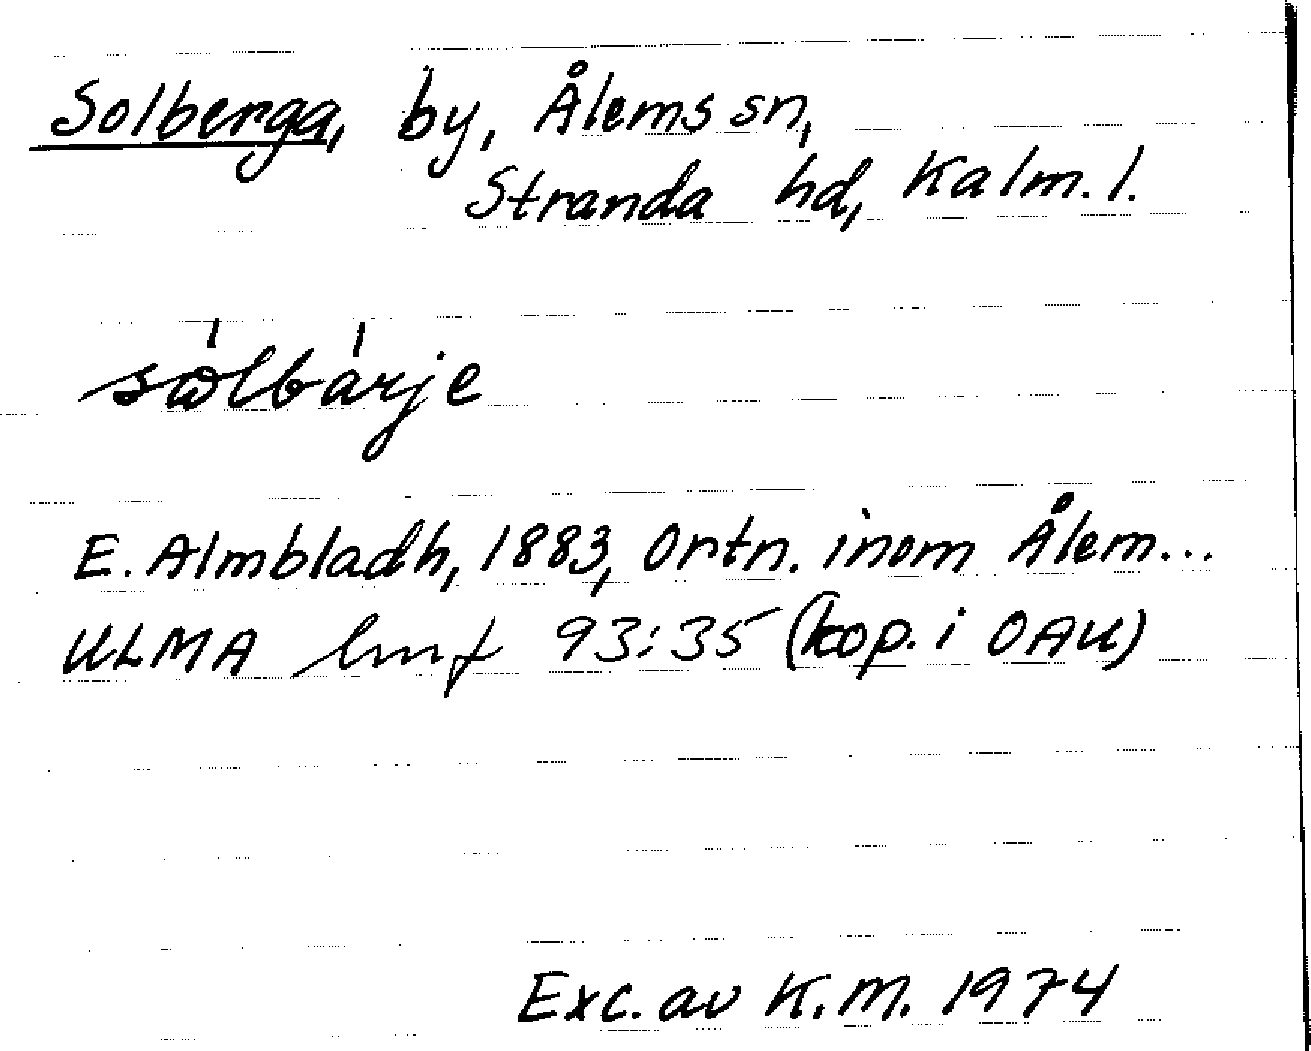 Solberga, by, Ålems sn,
Stranda hd, Kalm. l.
sålbárje
E. Almbladh, 1883, Ortn. inom Ålem...
ULMA 93:35 (kop. i OAU)
Exc. av K.M. 1974